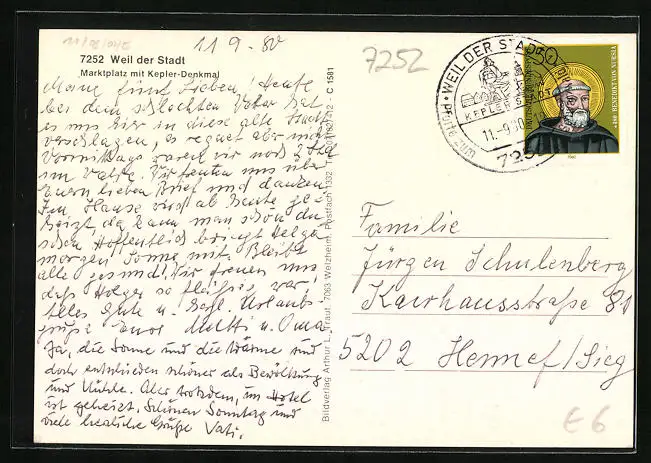 11.9.80
7252
7252 Weil der Stadt
Marktplatz mit Kepler-Denkmal
Meine fünf Lieben! Heute
bei dem schlechten Wetter hat
es uns hier in diese alte Stadt
verschlagen, es regnet aber nicht
Vormittags waren wir noch 2 Std
im Walde. Wir freuten uns über
Euern lieben Brief und danken.
Im Hause wird ab heute ge-
heizt, da kann man schön du-
schen. Hoffentlich bringt Helga
morgen Sonne mit. Bleibt
alle gesund! Wir freuen uns
daß Holger so fleißig war,
alles Gute u. herzl. Urlaubs-
grüße Eure Mutti u. Oma
Ja, die Sonne und die Wärme sind
doch entschieden schöner als Bewölkung
und Kühle. Aber trotzdem, im Hotel
ist geheizt. Schönen Sonntag und
viele herzliche Grüße Vati.
Bildverlag Arthur L. Traut, 7063 Welzheim, Postfach 1332
C 1581
WEIL DER STADT
KEPLER
11.-9.80
725
50
BENEDIKT VON NURSIA
Familie
Jürgen Schulenberg
5202 Hennef/Sieg
E6